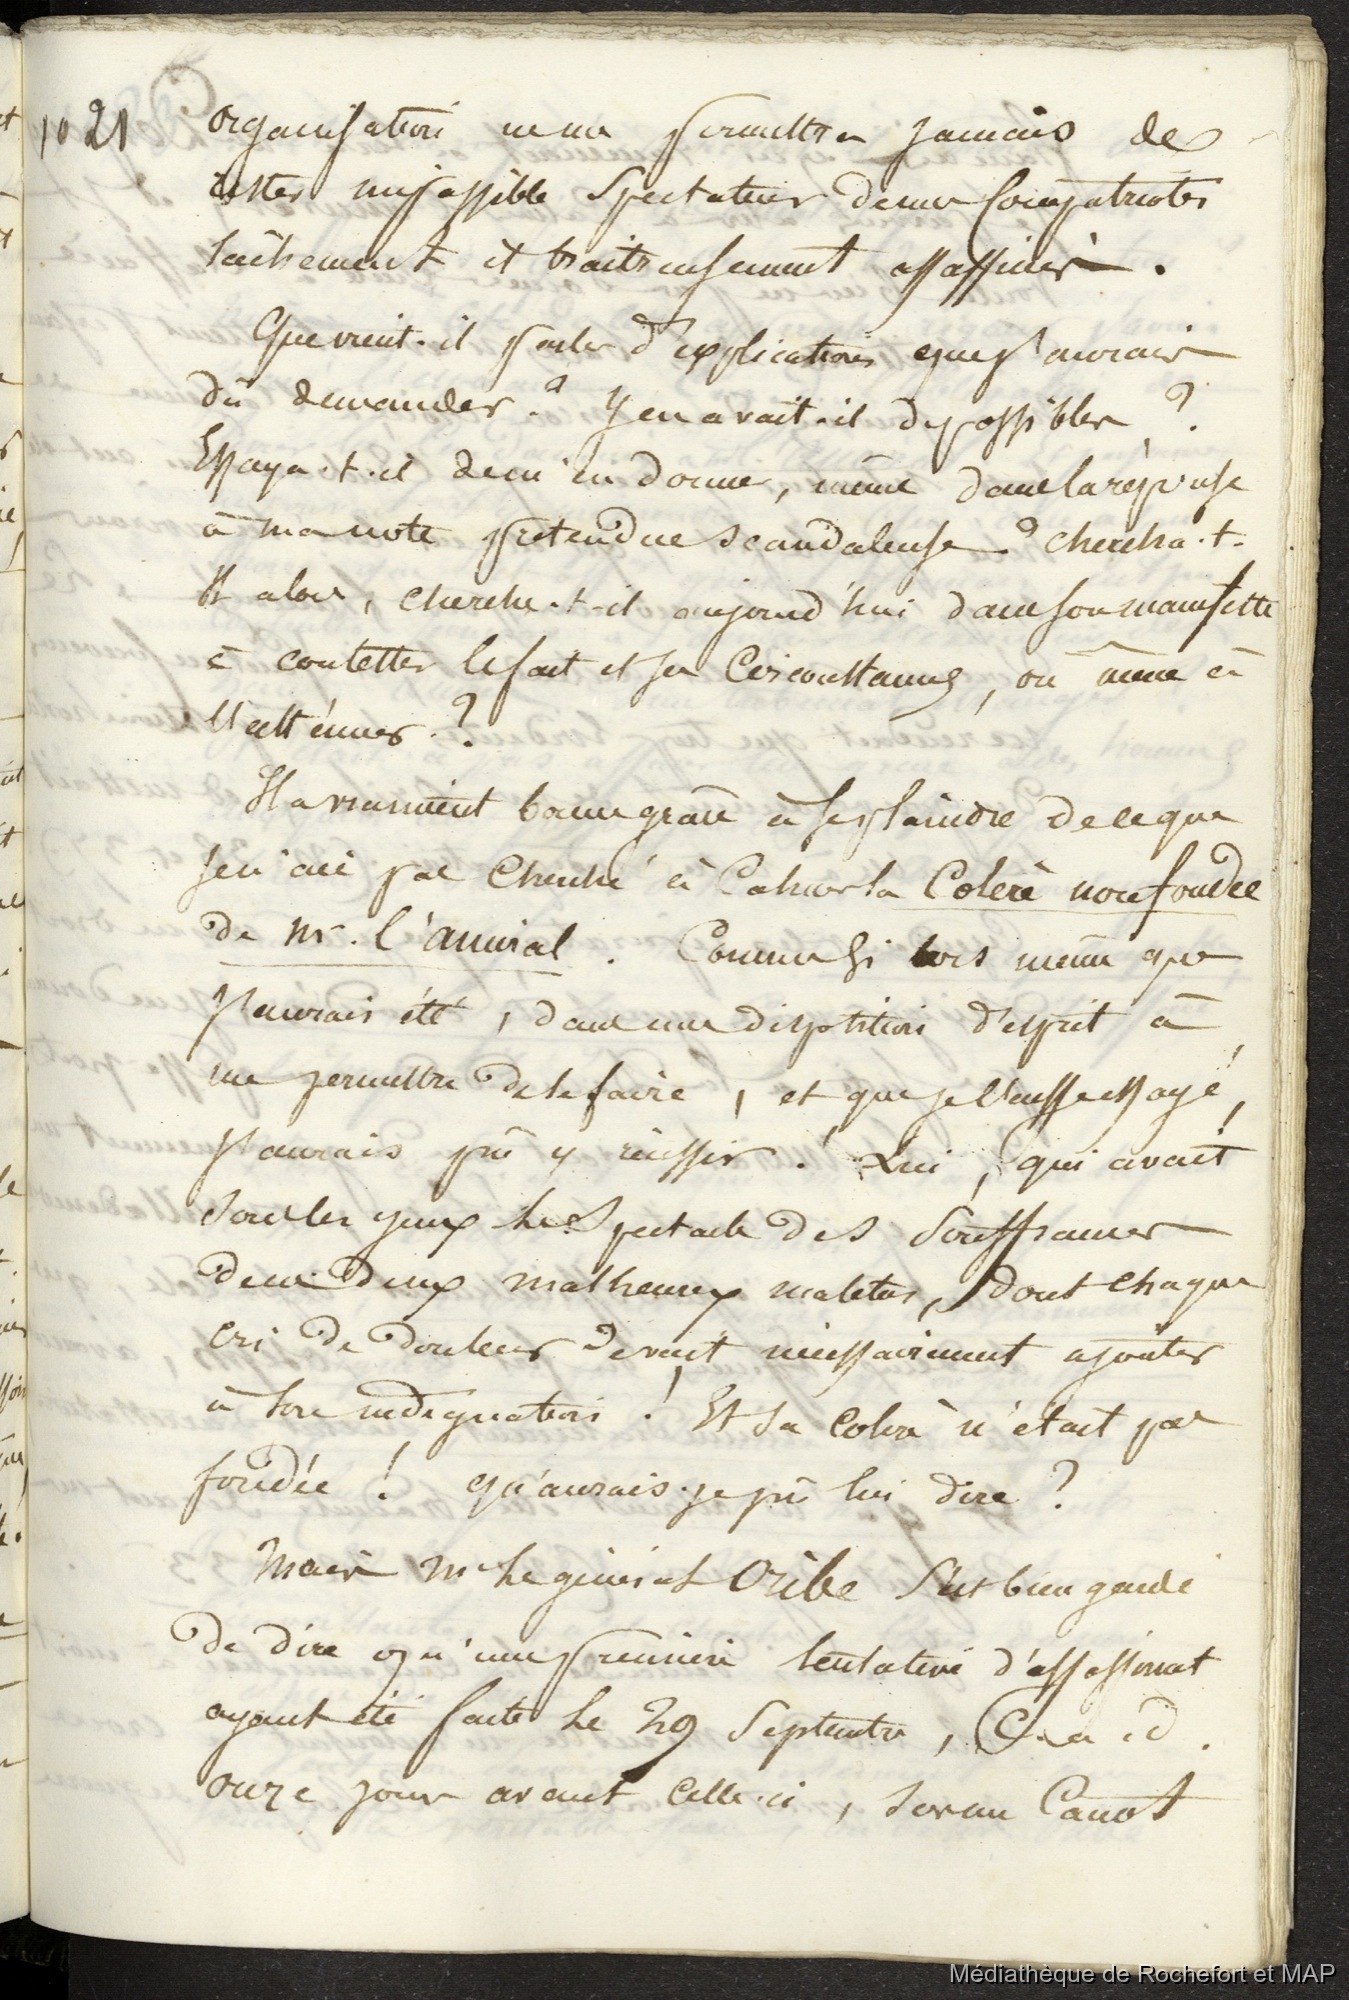 1021
organisation ne me permettra jamais de
rester impassible Spectateur de mes Compatriotes
lâchement et traitreusement assassinés.
Que vient-il parler d'explications que j'aurais
dû demander ? Y en avait-il de possibles ?
Essaya-t-il de m'en donner, même dans la réponse
à ma note prétendue scandaleuse ? chercha-t-
il alors, cherche-t-il aujourd'hui dans son manifeste
à contester le fait et ses Circonstances, ou même à
l'atténuer ?
Il a vraiment bonne grâce à se plaindre de ce que
je n'ai pas Cherché à Calmer la Colère non fondée
de Mr. l'amiral. Comme si lors même que
j'aurais été, dans une disposition d'esprit à
me permettre de le faire, et que je l'eusse essayé,
j'aurais pû y réussir ! Lui, qui avait
sous les yeux le Spectacle des Souffrances
de ces deux malheureux matelots, dont chaque
cri de douleur devait nécessairement ajouter
à son indignation ! Et sa Colère n'était pas
fondée ! qu'aurais-je pû lui dire ?
Mais Mr le général Oribe s'est bien gardé
de dire qu'une première tentative d'assassinat
ayant été faite le 29 Septembre, C. a. d.
onze jours avant Celle-ci, sur un Canot
Médiathèque de Rochefort et MAP